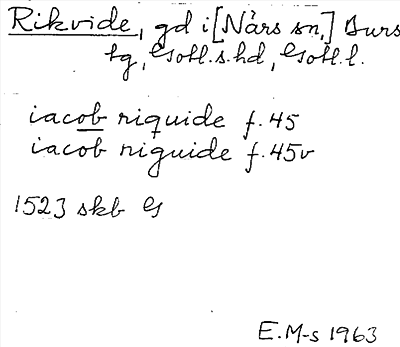 Rikvide, gd i [När​s sn,] Burs
tg, Gotl.s.hd, Gotl.l.
iacob riquide f.45
iacob riguide f.45v
1523 skb G
E.M-s 1963